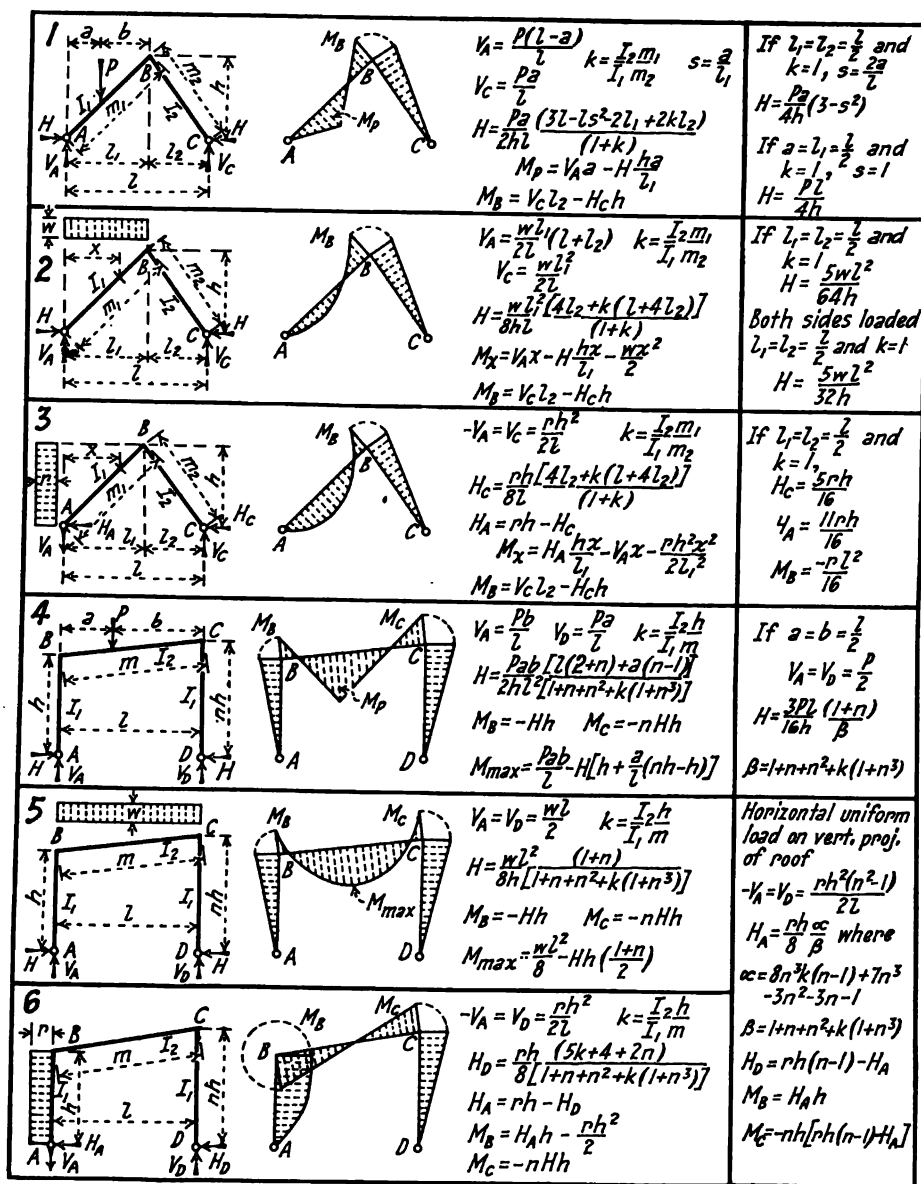 1
a b
P
B
m₂
h
I₁ m₁ I₂
H A C H
V_A l₁ l₂ V_C
l
M_B
B
M_P
A C
V_A = P(l-a)/l k = I₂m₁/I₁m₂ s = a/l₁
V_C = Pa/l
H = Pa/2hl (3l-ls²-2l₁+2kl₂)/(1+k)
M_P = V_A a - H ha/l₁
M_B = V_C l₂ - H_C h
If l₁=l₂=l/2 and
k=1, s=2a/l
H = Pa/4h (3-s²)
If a=l₁=l/2 and
k=1, s=1
H = Pl/4h
w
2
x
B
m₂
h
I₁ m₁ I₂
H A C H
V_A l₁ l₂ V_C
l
M_B
B
A C
V_A = wl₁/2l (l+l₂) k = I₂m₁/I₁m₂
V_C = wl₁²/2l
H = wl₁²/8hl [4l₂+k(l+4l₂)]/(1+k)
M_x = V_A x - H hx/l₁ - wx²/2
M_B = V_C l₂ - H_C h
If l₁=l₂=l/2 and
k=1
H = 5wl²/64h
Both sides loaded
l₁=l₂=l/2 and k=1
H = 5wl²/32h
3
B
x
r
m₂
h
I₁ m₁ I₂
A H_A C H_C
V_A l₁ l₂ V_C
l
M_B
B
A C
-V_A = V_C = rh²/2l k = I₂m₁/I₁m₂
H_C = rh/8l [4l₂+k(l+4l₂)]/(1+k)
H_A = rh - H_C
M_x = H_A hx/l₁ - V_A x - rh²x²/2l₁²
M_B = V_C l₂ - H_C h
If l₁=l₂=l/2 and
k=1,
H_C = 5rh/16
H_A = 11rh/16
M_B = -rl²/16
4
a P b
B C
m I₂
h I₁ l I₁ nh
H A D H
V_A V_D
M_B M_C
B C
M_P
A D
V_A = Pb/l V_D = Pa/l k = I₂h/I₁m
H = Pab/2hl² [l(2+n)+a(n-1)]/[1+n+n²+k(1+n³)]
M_B = -Hh M_C = -nHh
M_max = Pab/l - H[h + a/l (nh-h)]
If a=b=l/2
V_A = V_D = P/2
H = 3Pl/16h (1+n)/β
β=1+n+n²+k(1+n³)
5
w
B C
m I₂
h I₁ l I₁ nh
H A D H
V_A V_D
M_B M_C
B C
M_max
A D
V_A = V_D = wl/2 k = I₂h/I₁m
H = wl²/8h (1+n)/[1+n+n²+k(1+n³)]
M_B = -Hh M_C = -nHh
M_max = wl²/8 - Hh(1+n/2)
Horizontal uniform
load on vert. proj.
of roof
-V_A = V_D = rh²(n²-1)/2l
H_A = rh/8 α/β where
α=8n³k(n-1)+7n³
-3n²-3n-1
β=1+n+n²+k(1+n³)
H_D = rh(n-1)-H_A
M_B = H_A h
M_C = -nh[rh(n-1)-H_A]
6
r B C
m I₂
I₁ h l I₁ nh
A H_A D H_D
V_A V_D
M_B M_C
B C
A D
-V_A = V_D = rh²/2l k = I₂h/I₁m
H_D = rh/8 (5k+4+2n)/[1+n+n²+k(1+n³)]
H_A = rh - H_D
M_B = H_A h - rh²/2
M_C = -nHh